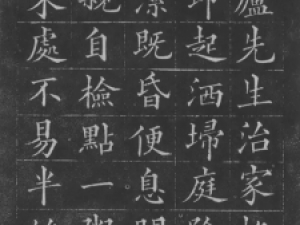 廬先生治家
即起洒埽庭
潔既昏便息
親自檢點一粥
來處不易半